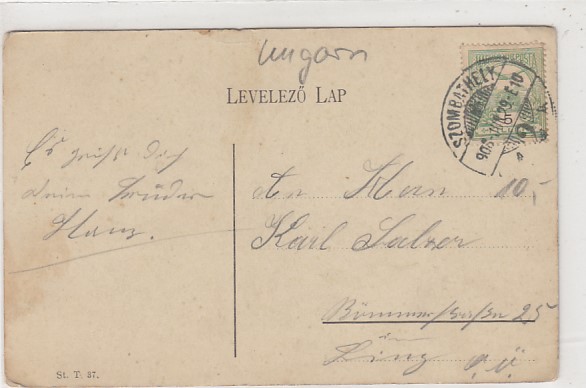 Ungarn
LEVELEZŐ LAP
SZOMBATHELY
Es grüßt Dich
Deine Brüder
Hans.
An Herrn 10,-
Karl Salzer
25
in
Linz O.Ö.
St. T. 37.